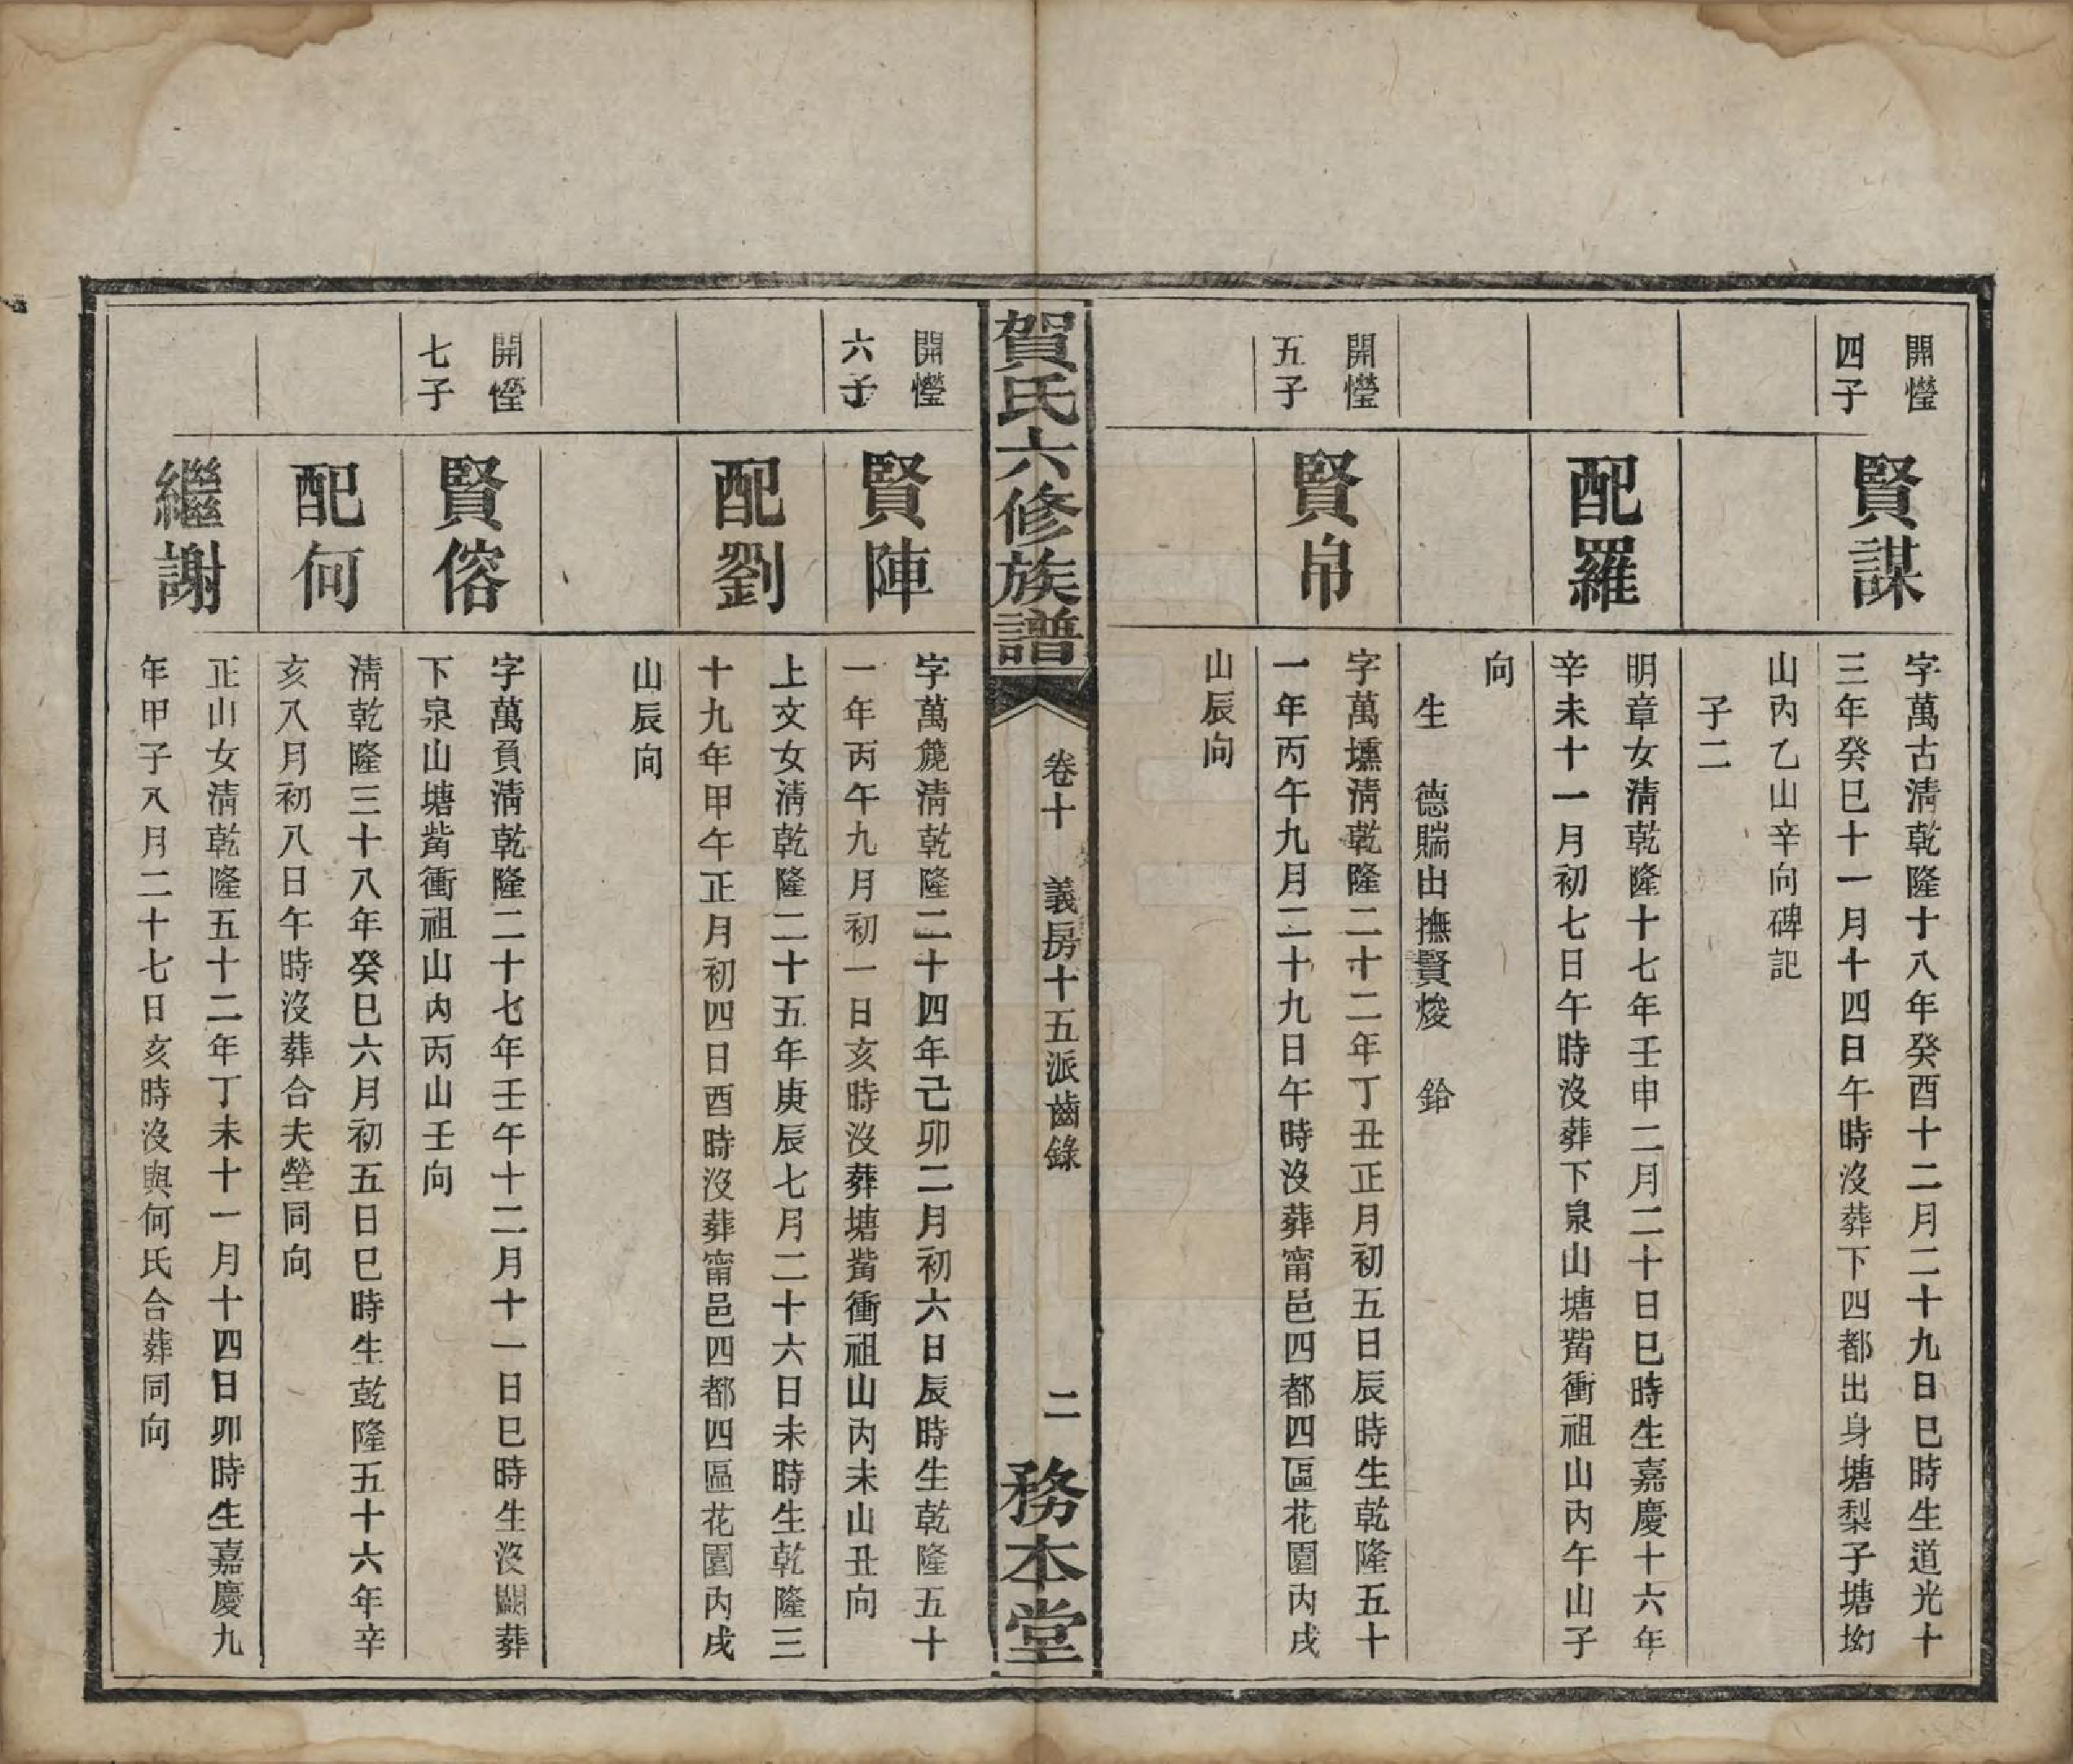 開慥
四子
賢謀
字萬古淸乾隆十八年癸酉十二月二十九日巳時生道光十
三年癸巳十一月十四日午時沒葬下四都出身塘梨子塘㘭
山內乙山辛向碑記
子二
配羅
明章女淸乾隆十七年壬申二月二十日巳時生嘉慶十六年
辛未十一月初七日午時沒葬下泉山塘觜衝祖山內午山子
向
生　德賟出撫賢焌　鉿
開慥
五子
賢帛
字萬壎淸乾隆二十二年丁丑正月初五日辰時生乾隆五十
一年丙午九月二十九日午時沒葬甯邑四都四區花園內戌
山辰向
賀氏六修族譜
卷十　義房十五派齒錄
二
務本堂
開慥
六子
賢陣
字萬箎淸乾隆二十四年己卯二月初六日辰時生乾隆五十
一年丙午九月初一日亥時沒葬塘觜衝祖山內未山丑向
配劉
上文女淸乾隆二十五年庚辰七月二十六日未時生乾隆三
十九年甲午正月初四日酉時沒葬甯邑四都四區花園內戌
山辰向
開慥
七子
賢傛
字萬負淸乾隆二十七年壬午十二月十一日巳時生沒闕葬
下泉山塘觜衝祖山內丙山壬向
配何
淸乾隆三十八年癸巳六月初五日巳時生乾隆五十六年辛
亥八月初八日午時沒葬合夫塋同向
繼謝
正山女淸乾隆五十二年丁未十一月十四日卯時生嘉慶九
年甲子八月二十七日亥時沒與何氏合葬同向